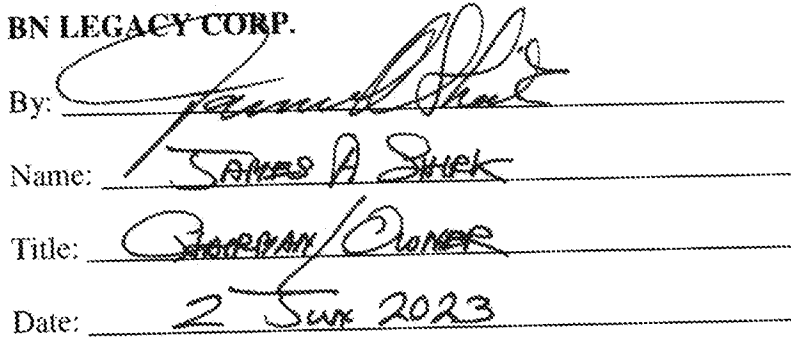 BN LEGACY CORP.
By:
Name: JAMES A SHEK
Title: CHAIRMAN / OWNER
Date: 2 JUN 2023